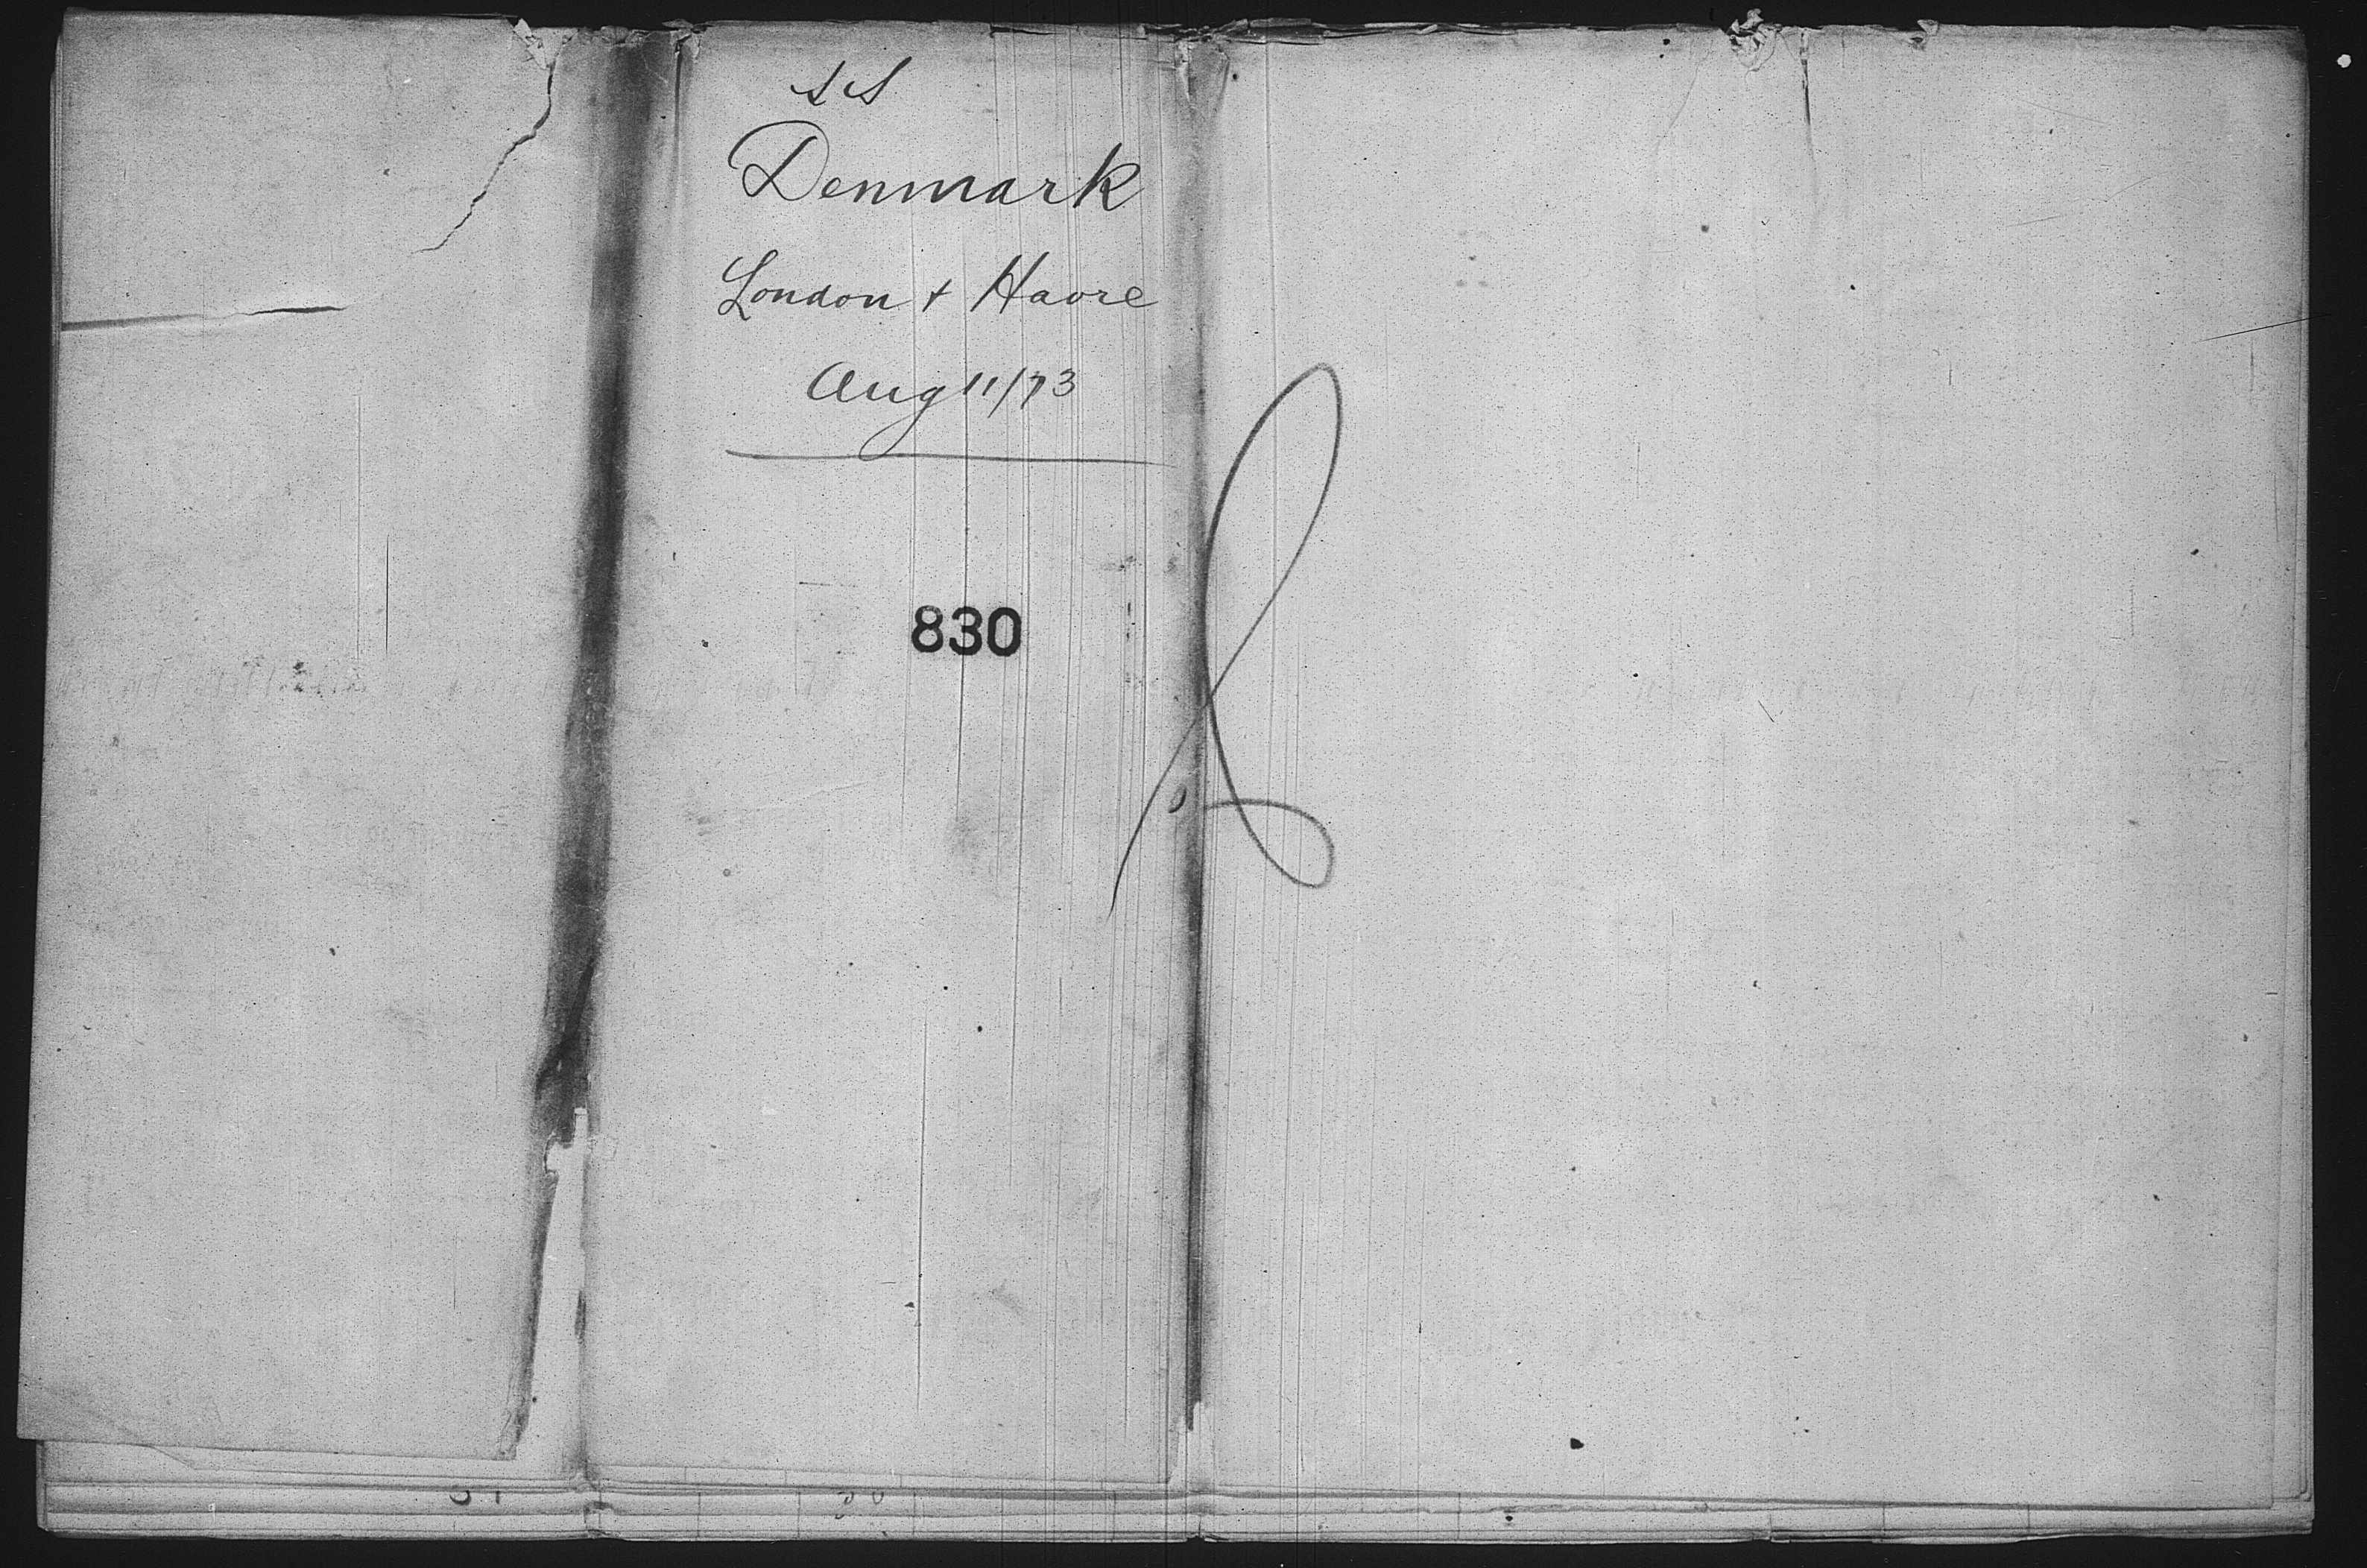 SS
Denmark
London + Havre
Aug 11/73
830